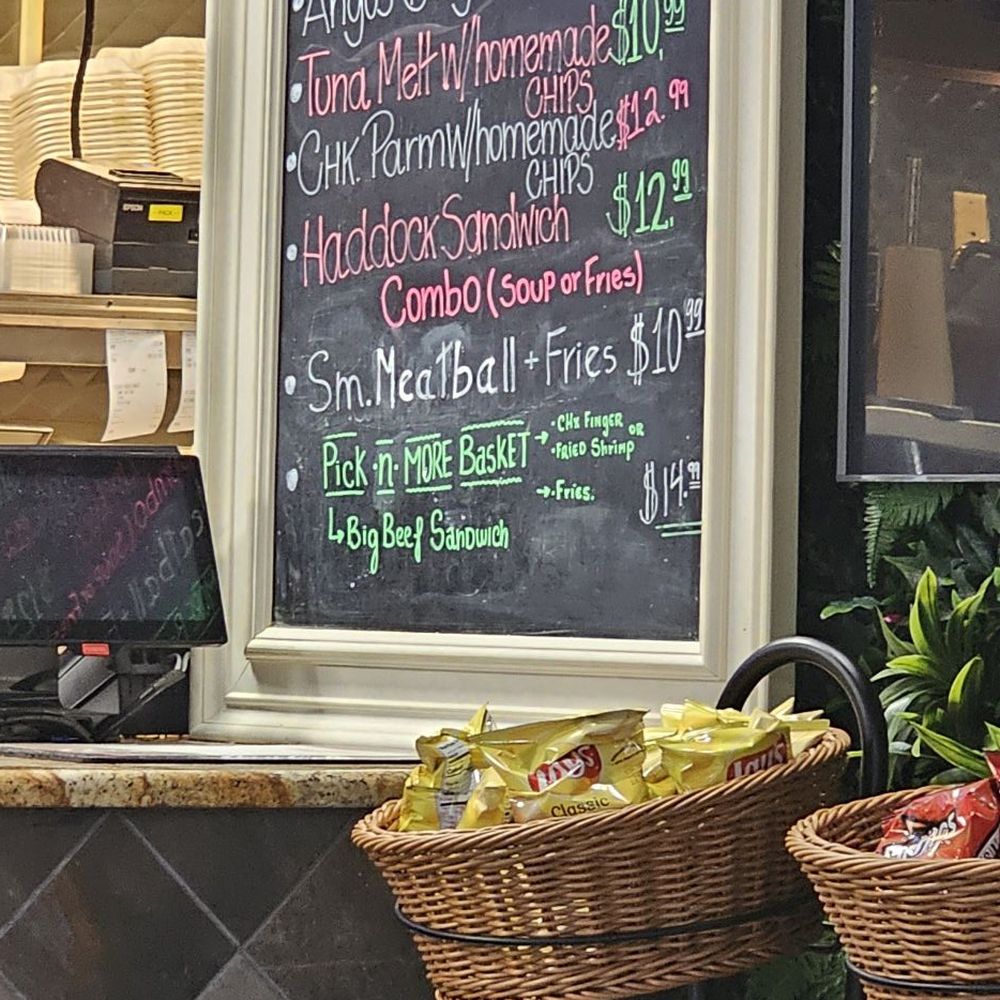 Angus
Tuna Melt W/homemade $10.99
CHIPS
CHK. Parm W/homemade $12.99
CHIPS
Haddock Sandwich $12.99
Combo (Soup or Fries)
Sm. Meatball + Fries $10.99
Pick·n·MORE Basket → ·CHK Finger or
·Fried Shrimp
→ Fries. $14.99
↳ Big Beef Sandwich
EPSON
Lay's
Classic
Lay's